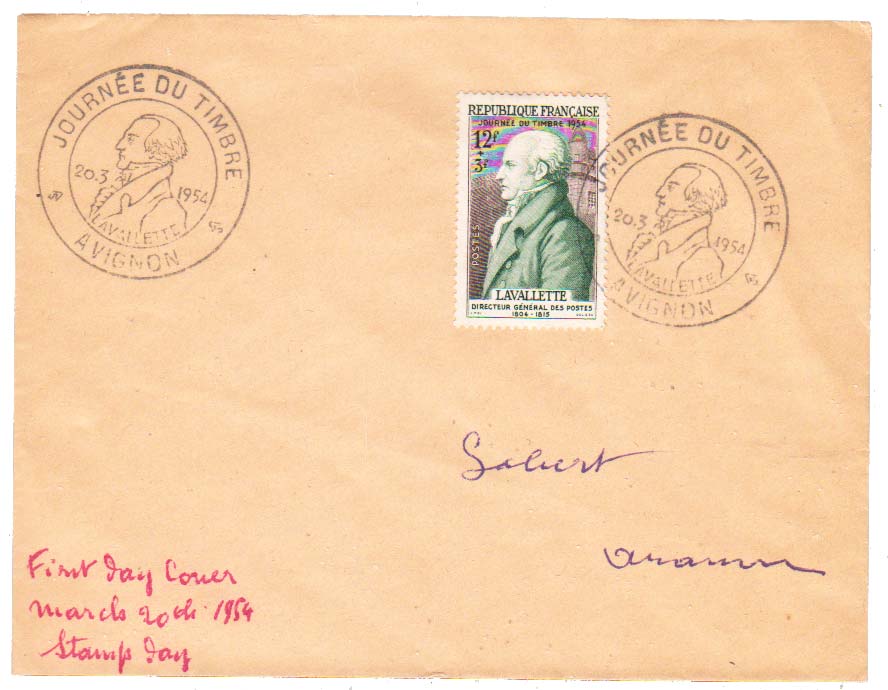 JOURNÉE DU TIMBRE
20.3 1954
LAVALLETTE
AVIGNON
REPUBLIQUE FRANÇAISE
JOURNÉE DU TIMBRE 1954
12f
+
3f
POSTES
LAVALLETTE
DIRECTEUR GÉNÉRAL DES POSTES
1804 - 1815
JOURNÉE DU TIMBRE
20.3 1954
LAVALLETTE
AVIGNON
First Day Cover
march 20th 1954
Stamp Day